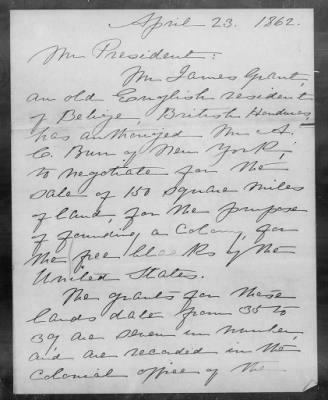 April 23. 1862.
Mr President:
Mr James Grant,
an old English resident
of Belize, British Honduras
has authorized Mr A.
C. Burr of New York,
to negotiate for the
sale of 150 square miles
of land, for the purpose
of founding a Colony, for
the free blacks of the
United States.
The grants for these
lands date from 35 to
39 are seven in number,
and are recorded in the
Colonial office of the